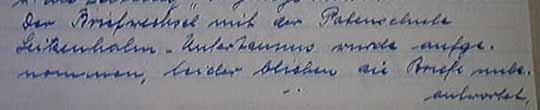 Der Briefwechsel mit der Patenschule
Seitzenhahn-Untertaunus wurde aufge-
nommen, leider blieben die Briefe unbe-
antwortet.